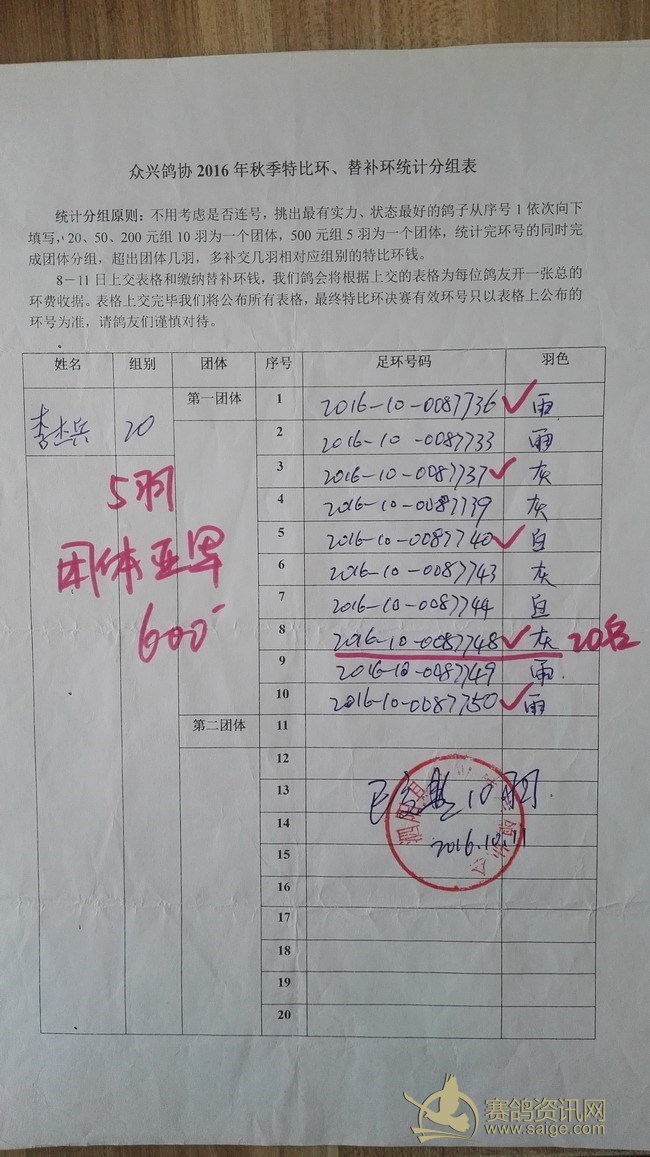 众兴鸽协 2016 年秋季特比环、替补环统计分组表
统计分组原则：不用考虑是否连号，挑出最有实力、状态最好的鸽子从序号 1 依次向下
填写，20、50、200 元组 10 羽为一个团体，500 元组 5 羽为一个团体，统计完环号的同时完
成团体分组，超出团体几羽，多补交几羽相对应组别的特比环钱。
8－11 日上交表格和缴纳替补环钱，我们鸽会将根据上交的表格为每位鸽友开一张总的
环费收据。表格上交完毕我们将公布所有表格，最终特比环决赛有效环号只以表格上公布的
环号为准，请鸽友们谨慎对待。
姓名 组别 团体 序号 足环号码 羽色
李杰兵 20 第一团体 1 2016-10-0087736 ✓ 雨
2 2016-10-0087733 雨
3 2016-10-0087737 ✓ 灰
4 2016-10-0087739 灰
5 2016-10-0087740 ✓ 白
6 2016-10-0087743 灰
7 2016-10-0087744 白
8 2016-10-0087748 ✓ 灰 20名
9 2016-10-0087749 雨
10 2016-10-0087750 ✓ 雨
5羽
团体亚军
600
第二团体 11
12
13
14
15
16
17
18
19
20
10羽
2016.10.11
赛鸽资讯网
www.saige.com